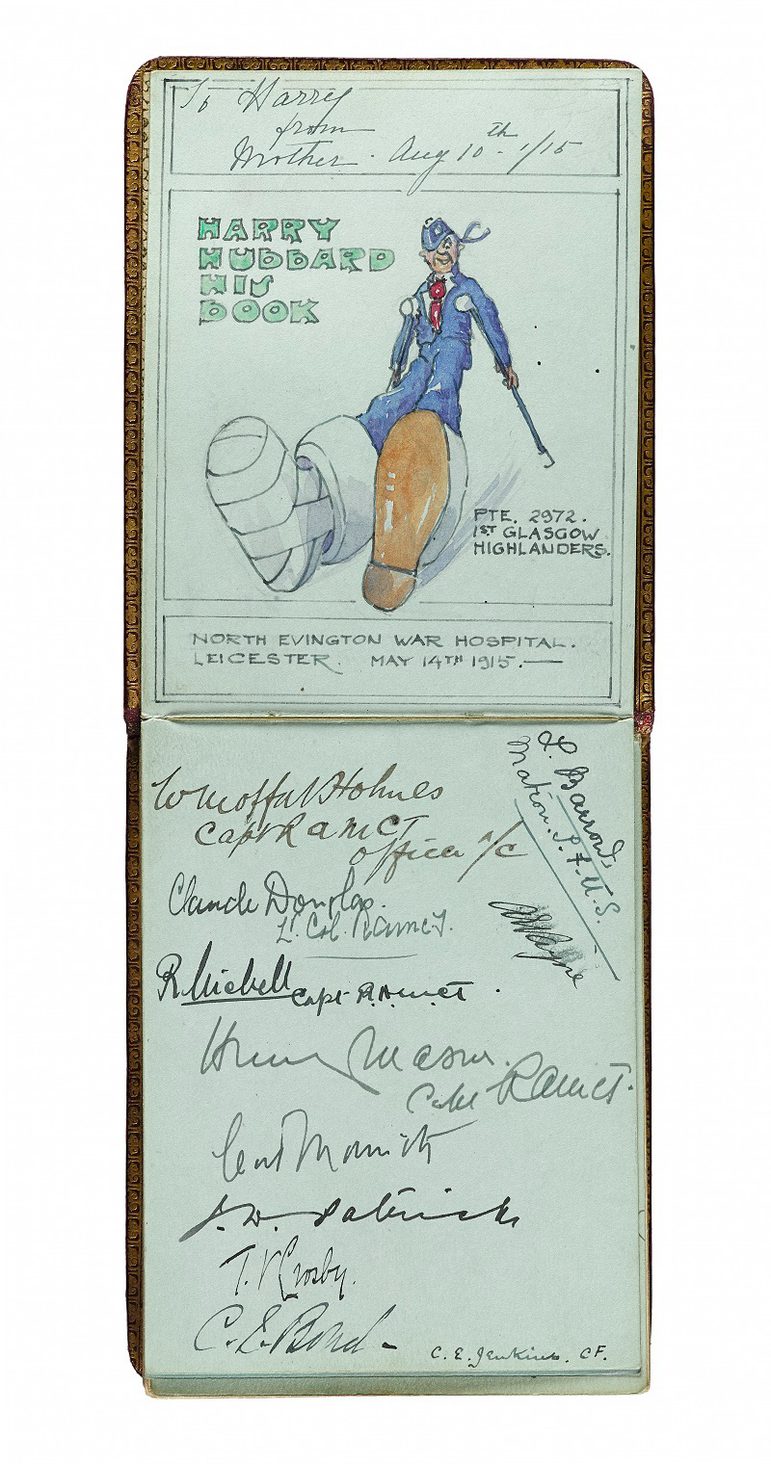 To Harry
from
Mother. Aug 10th 1/15
HARRY
HUBBARD
HIS
BOOK
PTE. 2972.
1ST GLASGOW
HIGHLANDERS.
NORTH EVINGTON WAR HOSPITAL.
LEICESTER. MAY 14TH 1915.—
W Moffat Holmes
Capt R A M C T
Officer i/c
Barrow,
Matron.
Claude Douglas.
Lt. Col. RAMCT.
R Michell Capt R.A.M.C.T.
Henry Mason.
Capt RAMCT.
J. W. Patrick
T. V Crosby.
C. E. Bond
C. E. Jenkins. CF.